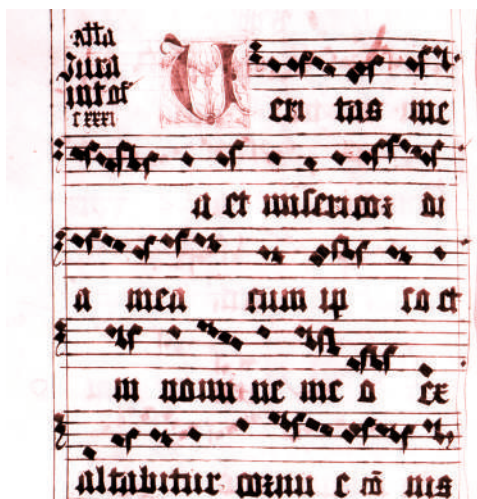 cxxxi
Ueri tas me
a et misericor di
a mea cum ip so et
in nomi ne me o ex
altabitur cornu e